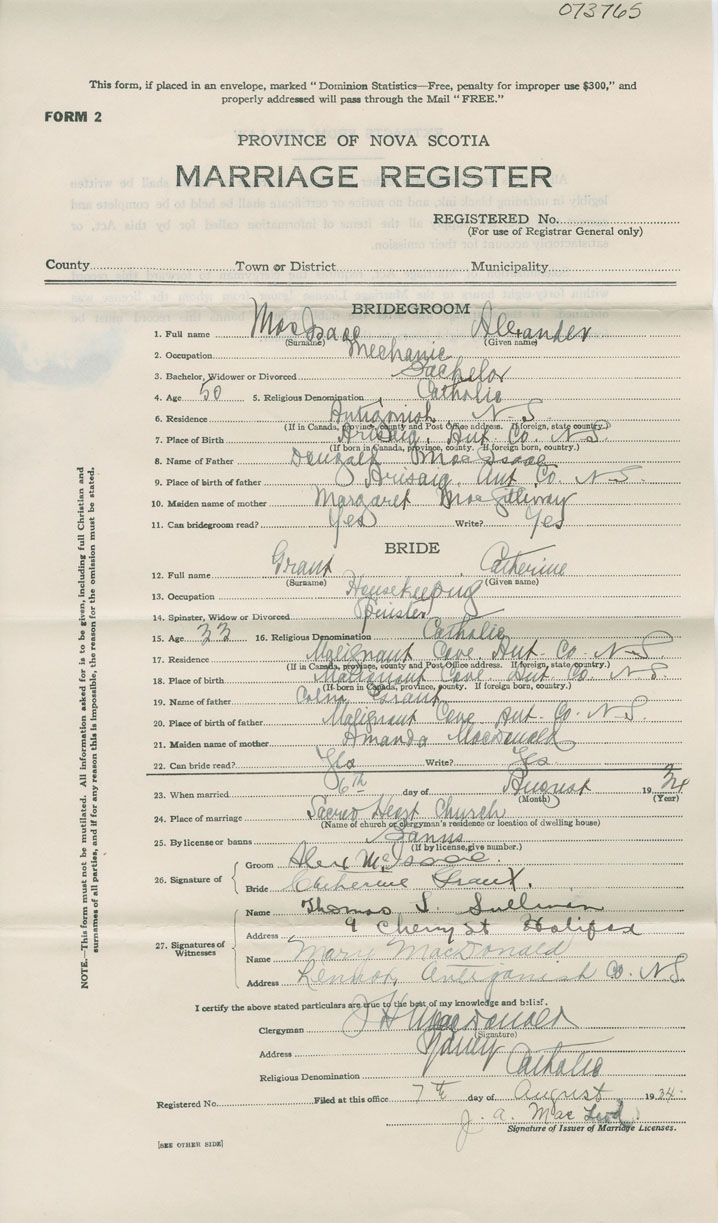 073765
This form, if placed in an envelope, marked "Dominion Statistics—Free, penalty for improper use $300," and
properly addressed will pass through the Mail "FREE."
FORM 2
PROVINCE OF NOVA SCOTIA
MARRIAGE REGISTER
REGISTERED No.
(For use of Registrar General only)
County Town or District Municipality
BRIDEGROOM
1. Full name MacIsaac Alexander
(Surname) (Given name)
2. Occupation Mechanic
3. Bachelor, Widower or Divorced Bachelor
4. Age 50 5. Religious Denomination Catholic
6. Residence Antigonish N.S.
(If in Canada, province, county and Post Office address. If foreign, state country.)
7. Place of Birth Arisaig, Ant. Co. N.S.
(If born in Canada, province, county. If foreign born, country.)
8. Name of Father Dougald MacIsaac
9. Place of birth of father Arisaig, Ant. Co. N.S.
10. Maiden name of mother Margaret MacGillivray
11. Can bridegroom read? Yes Write? Yes
BRIDE
12. Full name Grant, Catherine
(Surname) (Given name)
13. Occupation Housekeeping
14. Spinster, Widow or Divorced Spinster
15. Age 33 16. Religious Denomination Catholic
17. Residence Malignant Cove, Ant. Co. N.S.
(If in Canada, province, county and Post Office address. If foreign, state country.)
18. Place of birth Malignant Cove, Ant. Co. N.S.
(If born in Canada, province, county. If foreign born, country.)
19. Name of father Grant
20. Place of birth of father Malignant Cove Ant. Co. N.S.
21. Maiden name of mother Amanda MacDonald
22. Can bride read? Yes Write? Yes
23. When married 6th day of August 1934
(Month) (Year)
24. Place of marriage Sacred Heart Church
(Name of church or clergyman's residence or location of dwelling house)
25. By license or banns Banns
(If by license, give number.)
26. Signature of Groom Alex McIsaac.
Bride Catherine Grant.
27. Signatures of Witnesses
Name Thomas S. Sullivan
Address 9 Cherry St Halifax
Name Mary MacDonald
Address Lennox, Antigonish Co. N.S.
I certify the above stated particulars are true to the best of my knowledge and belief.
Clergyman J H MacDonald
(Signature)
Address Sydney
Religious Denomination Catholic
Registered No. Filed at this office 7th day of August 1934
J. A. MacLeod
Signature of Issuer of Marriage Licenses.
[SEE OTHER SIDE]
NOTE.—This form must not be mutilated. All information asked for is to be given, including full Christian and
surnames of all parties, and if for any reason this is impossible, the reason for the omission must be stated.